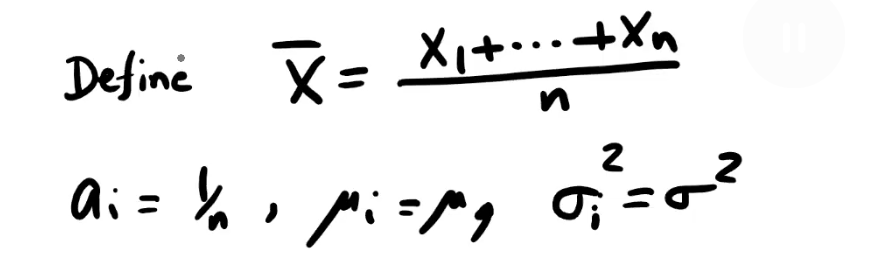 Define X̄ = (X₁+⋯+Xₙ)/n
aᵢ = 1/n , μᵢ = μ, σᵢ² = σ²